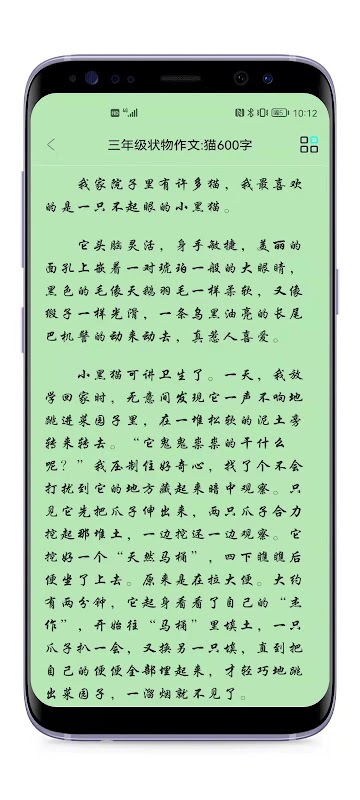 HD 4G 65 10:12
三年级状物作文:猫600字
我家院子里有许多猫，我最喜欢
的是一只不起眼的小黑猫。
它头脑灵活，身手敏捷，美丽的
面孔上嵌着一对琥珀一般的大眼睛，
黑色的毛像天鹅羽毛一样柔软，又像
缎子一样光滑，一条乌黑油亮的长尾
巴机警的动来动去，真惹人喜爱。
小黑猫可讲卫生了。一天，我放
学回家时，无意间发现它一声不响地
跳进菜园子里，在一堆松软的泥土旁
转来转去。“它鬼鬼祟祟的干什么
呢？”我压制住好奇心，找了个不会
打扰到它的地方藏起来暗中观察。只
见它先把爪子伸出来，两只爪子合力
挖起那堆土，一边挖还一边观察。它
挖好一个“天然马桶”，四下瞧瞧后
便坐了上去。原来是在拉大便。大约
有两分钟，它起身看着了自己的“杰
作”，开始往“马桶”里填土，一只
爪子扒一会，又换另一只填，直到把
自己的便便全部埋起来，才轻巧地跳
出菜园子，一溜烟就不见了。